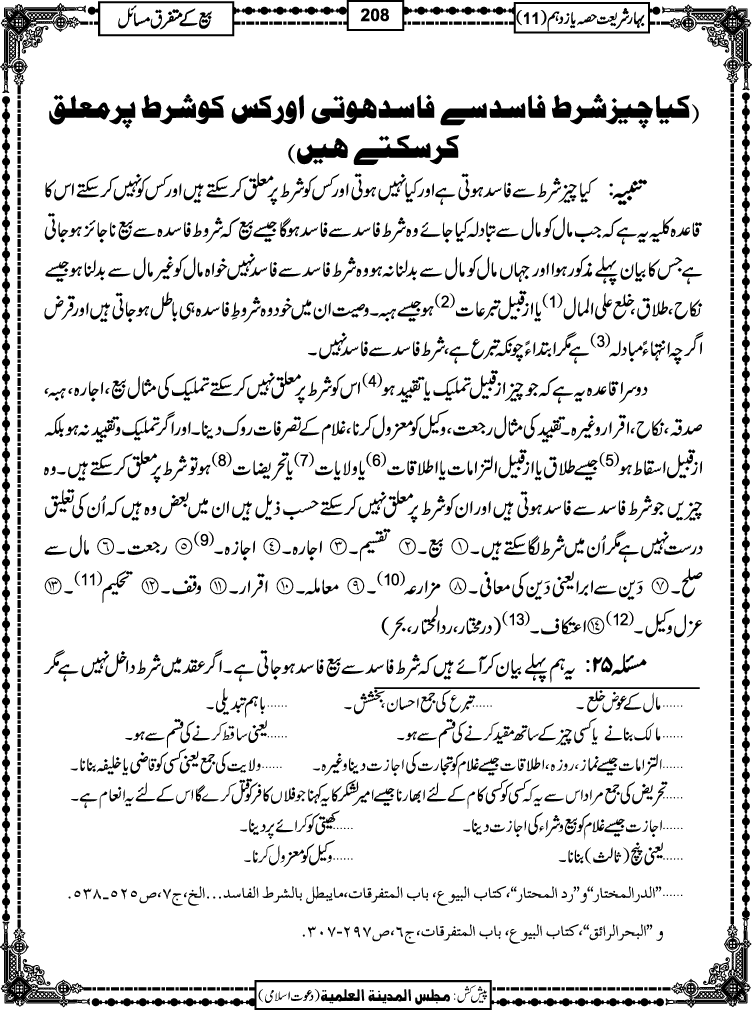 بہارشریعت حصہ یازدہم (11)
208
بیع کے متفرق مسائل
(کیا چیز شرط فاسد سے فاسد ھوتی اور کس کو شرط پر معلق
کرسکتے ھیں)
تنبیہ: کیا چیز شرط سے فاسد ہوتی ہے اور کیا نہیں ہوتی اور کس کو شرط پر معلق کرسکتے ہیں اور کس کو نہیں کرسکتے اس کا
قاعدہ کلیہ یہ ہے کہ جب مال کو مال سے تبادلہ کیا جائے وہ شرط فاسد سے فاسد ہوگا جیسے بیع کہ شروط فاسدہ سے بیع ناجائز ہوجاتی
ہے جس کا بیان پہلے مذکور ہوا اور جہاں مال کو مال سے بدلنا نہ ہو وہ شرط فاسد سے فاسد نہیں خواہ مال کو غیر مال سے بدلنا ہو جیسے
نکاح، طلاق، خلع علی المال (1) یا از قبیل تبرعات (2) ہو جیسے ہبہ۔ وصیت ان میں خود وہ شروط فاسدہ ہی باطل ہوجاتی ہیں اور قرض
اگرچہ انتہاءً مبادلہ (3) ہے مگر ابتداءً چونکہ تبرع ہے، شرط فاسد سے فاسد نہیں۔
دوسرا قاعدہ یہ ہے کہ جو چیز از قبیل تملیک یا تقیید ہو (4) اس کو شرط پر معلق نہیں کرسکتے تملیک کی مثال بیع، اجارہ، ہبہ،
صدقہ، نکاح، اقرار وغیرہ۔ تقیید کی مثال رجعت، وکیل کو معزول کرنا، غلام کے تصرفات روک دینا۔ اور اگر تملیک و تقیید نہ ہو بلکہ
از قبیل اسقاط ہو (5) جیسے طلاق یا از قبیل التزامات یا اطلاقات (6) یا ولایات (7) یا تحریضات (8) ہو تو شرط پر معلق کرسکتے ہیں۔ وہ
چیزیں جو شرط فاسد سے فاسد ہوتی ہیں اور ان کو شرط پر معلق نہیں کرسکتے حسب ذیل ہیں ان میں بعض وہ ہیں کہ اُن کی تعلیق
درست نہیں ہے مگر اُن میں شرط لگا سکتے ہیں۔ ① بیع۔ ② تقسیم۔ ③ اجارہ۔ ④ اجازہ۔(9) ⑤ رجعت۔ ⑥ مال سے
صلح۔ ⑦ دَین سے ابرا یعنی دَین کی معافی۔ ⑧ مزارعہ(10)۔ ⑨ معاملہ۔ ⑩ اقرار۔ ⑪ وقف۔ ⑫ تحکیم(11)۔ ⑬
عزل وکیل۔(12) ⑭ اعتکاف۔(13) (درمختار، ردالمحتار، بحر)
مسئلہ ۲۵: یہ ہم پہلے بیان کر آئے ہیں کہ شرط فاسد سے بیع فاسد ہوجاتی ہے۔ اگر عقد میں شرط داخل نہیں ہے مگر
......مال کے عوض خلع۔ ......تبرع کی جمع احسان، بخشش۔ ......باہم تبدیلی۔
......مالک بنانے یا کسی چیز کے ساتھ مقید کرنے کی قسم سے ہو۔ ......یعنی ساقط کرنے کی قسم سے ہو۔
......التزامات جیسے نماز، روزہ، اطلاقات جیسے غلام کو تجارت کی اجازت دینا وغیرہ۔ ......ولایت کی جمع یعنی کسی کو قاضی یا خلیفہ بنانا۔
......تحریض کی جمع مراد اس سے یہ کہ کسی کو کسی کام کے لئے ابھارنا جیسے امیر لشکر کا یہ کہنا جو فلاں کافر کو قتل کرے گا اس کے لئے یہ انعام ہے۔
......اجازت جیسے غلام کو بیع و شراء کی اجازت دینا۔ ......کھیتی کو کرائے پر دینا۔
......یعنی پنچ (ثالث) بنانا۔ ......وکیل کو معزول کرنا۔
......"الدرالمختار" و "رد المحتار"، کتاب البیوع، باب المتفرقات، مایبطل بالشرط الفاسد...الخ، ج۷، ص۵۲۵_۵۳۸.
و "البحرالرائق"، کتاب البیوع، باب المتفرقات، ج۶، ص۲۹۷-۳۰۷.
پیش کش: مجلس المدینة العلمیة (دعوت اسلامی)